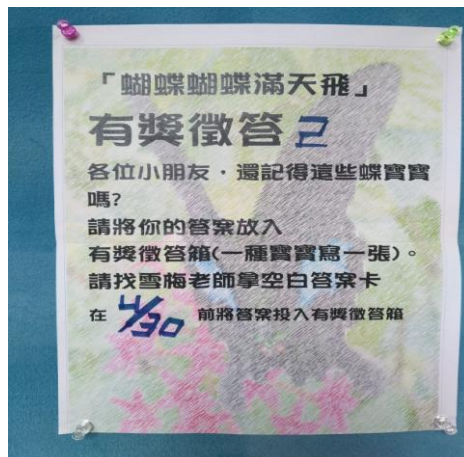 「蝴蝶蝴蝶滿天飛」
有獎徵答 2
各位小朋友,還記得這些蝶寶寶
嗎?
請將你的答案放入
有獎徵答箱(一種寶寶寫一張)。
請找雪梅老師拿空白答案卡
在 4/30 前將答案投入有獎徵答箱